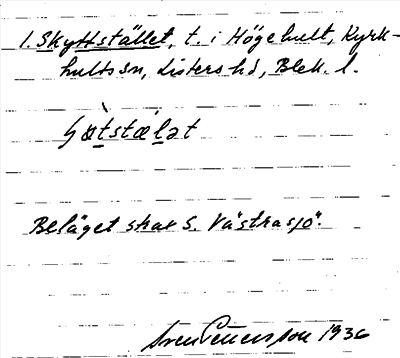 1. Skyttstället, t. i Högehult, Kyrk-
hults sn, Listers hd, Blek. l.
Beläget strax S. Västrasjö.
Sven Benson 1936